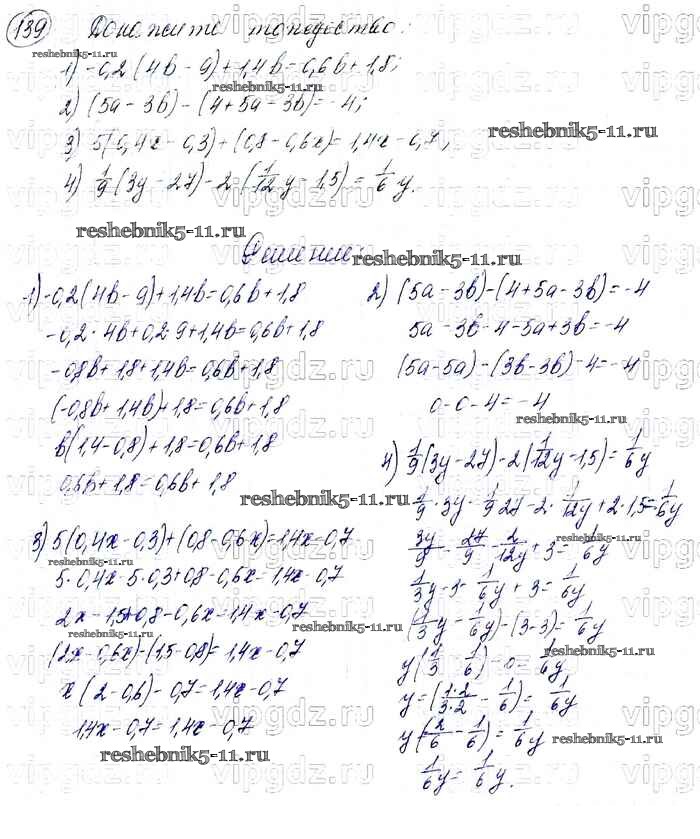 139 Докажите тождество:
1) -0,2(4b-9)+1,4b=0,6b+1,8;
reshebnik5-11.ru
2) (5a-3b)-(4+5a-3b)=-4;
3) 5(0,4x-0,3)+(0,8-0,6x)=1,4x-0,7;
reshebnik5-11.ru
4) 1/9(3y-27)-2(1/12y-1,5)=1/6y.
reshebnik5-11.ru
Решение:
1) -0,2(4b-9)+1,4b=0,6b+1,8
-0,2·4b+0,2·9+1,4b=0,6b+1,8
-0,8b+1,8+1,4b=0,6b+1,8
(-0,8b+1,4b)+1,8=0,6b+1,8
b(1,4-0,8)+1,8=0,6b+1,8
0,6b+1,8=0,6b+1,8
reshebnik5-11.ru
2) (5a-3b)-(4+5a-3b)=-4
5a-3b-4-5a+3b=-4
(5a-5a)-(3b-3b)-4=-4
0-0-4=-4
reshebnik5-11.ru
3) 5(0,4x-0,3)+(0,8-0,6x)=1,4x-0,7
5·0,4x-5·0,3+0,8-0,6x=1,4x-0,7
2x-1,5+0,8-0,6x=1,4x-0,7
reshebnik5-11.ru
(2x-0,6x)-(1,5-0,8)=1,4x-0,7
x(2-0,6)-0,7=1,4x-0,7
1,4x-0,7=1,4x-0,7
reshebnik5-11.ru
4) 1/9(3y-27)-2(1/12y-1,5)=1/6y
1/9·3y-1/9·27-2·1/12y+2·1,5=1/6y
3y/9-27/9-2/12y+3=1/6y
1/3y-3-1/6y+3=1/6y
(1/3y-1/6y)-(3-3)=1/6y
reshebnik5-11.ru
y(1/3-1/6)-0=1/6y
y=(1·2/3·2-1/6)=1/6y
y(2/6-1/6)=1/6y
reshebnik5-11.ru
1/6y=1/6y.
reshebnik5-11.ru
vipgdz.ru